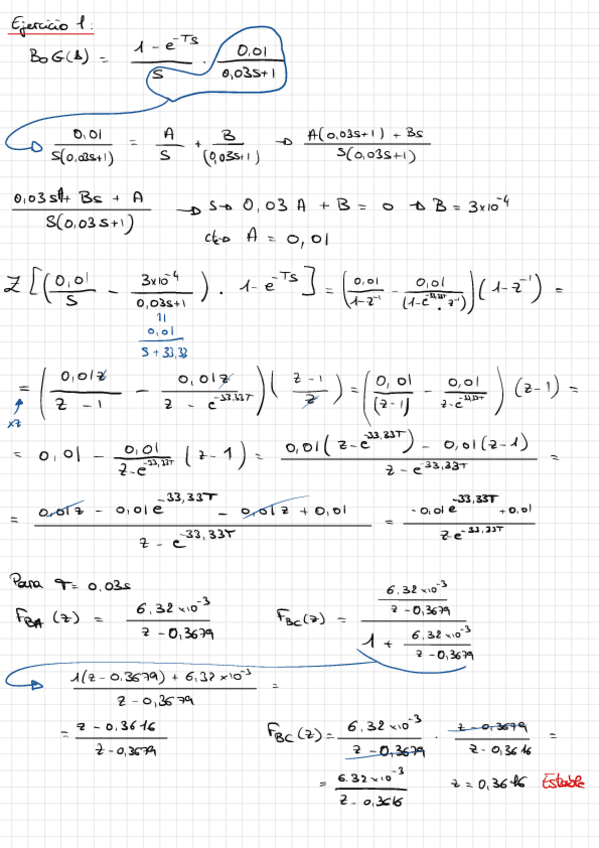 Ejercicio 1:
B₀G(s) = (1 - e^-Ts)/s · 0,01/(0,03s+1)
0,01/(s(0,03s+1)) = A/s + B/(0,03s+1) → (A(0,03s+1) + Bs)/(s(0,03s+1))
(0,03sA + Bs + A)/(s(0,03s+1)) → s→ 0,03A + B = 0 → B = 3x10^-4
cte→ A = 0,01
Z[(0,01/s - 3x10^-4/(0,03s+1)) · 1-e^-Ts] = (0,01/(1-z^-1) - 0,01/(1-e^-33,33T · z^-1))(1-z^-1) =
= 0,01/(s+33,33)
= (0,01z/(z-1) - 0,01z/(z-e^-33,33T))((z-1)/z) = (0,01/(z-1) - 0,01/(z-e^-33,33T))(z-1) =
xz
= 0,01 - 0,01/(z-e^-33,33T) (z-1) = (0,01(z-e^-33,33T) - 0,01(z-1))/(z-e^-33,33T) =
= (0,01z - 0,01e^-33,33T - 0,01z + 0,01)/(z-e^-33,33T) = (-0,01e^-33,33T + 0,01)/(z-e^-33,33T)
Para T = 0.03s
F_BA(z) = 6,32x10^-3/(z-0,3679) F_BC(z) = (6,32x10^-3/(z-0,3679))/(1 + 6,32x10^-3/(z-0,3679))
(1(z-0,3679) + 6,32x10^-3)/(z-0,3679) =
= (z-0,3616)/(z-0,3679) F_BC(z) = 6,32x10^-3/(z-0,3679) · (z-0,3679)/(z-0,3616) =
= 6.32x10^-3/(z-0,3616) z = 0,3616 Estable